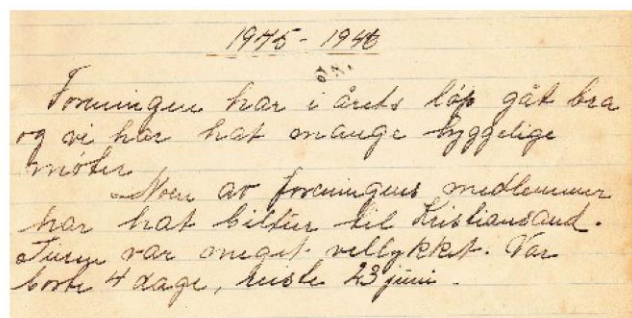 1945 - 1946
Foreningen har i årets løp gåt bra
og vi har hat mange hyggelige
møter
Noen av foreningens medlemmer
har hat biltur til Kristiansand.
Turen var meget vellykket. Var
borte 4 dage, reiste 23 juni.